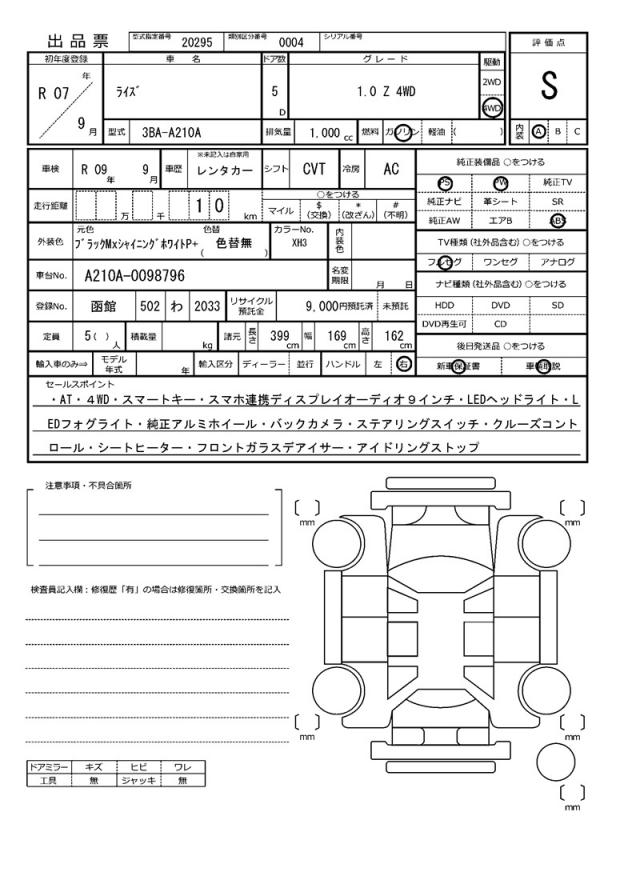 出 品 票 型式指定番号 20295 類別区分番号 0004 シリアル番号
初年度登録 車 名 ドア数 グレード 駆動 評 価 点
R 07 年 9 月 ﾗｲｽﾞ 5 D 1.0 Z 4WD 2WD 4WD S
型式 3BA-A210A 排気量 1.000 cc 燃料 ガソリン 軽油 ( ) 内装 A B C
車検 R 09 年 9 月 車歴 ※未記入は自家用 レンタカー シフト CVT 冷房 AC 純正装備品 ○をつける
PS PW 純正TV
走行距離 万 千 1 0 km ○をつける
マイル $ (交換) * (改ざん) # (不明)
純正ナビ 革シート SR
純正AW エアB ABS
外装色 元色 ﾌﾞﾗｯｸMxｼｬｲﾆﾝｸﾞﾎﾜｲﾄP+ 色替 ( 色替無 ) カラーNo. XH3 内装色
TV種類 (社外品含む) ○をつける
フルセグ ワンセグ アナログ
車台No. A210A-0098796 名変期限 月 日
ナビ種類 (社外品含む) ○をつける
登録No. 函館 502 わ 2033 リサイクル預託金 9,000円預託済 未預託
HDD DVD SD
DVD再生可 CD
定員 5( ) 人 積載量 kg 諸元 長さ 399 cm 幅 169 cm 高さ 162 cm
後日発送品 ○をつける
輸入車のみ⇒ モデル年式 年 輸入区分 ディーラー 並行 ハンドル 左 右
新車保証書 車輌取説
セールスポイント
・AT・4WD・スマートキー・スマホ連携ディスプレイオーディオ９インチ・LEDヘッドライト・L
EDフォグライト・純正アルミホイール・バックカメラ・ステアリングスイッチ・クルーズコント
ロール・シートヒーター・フロントガラスデアイサー・アイドリングストップ
注意事項・不具合箇所
mm mm
検査員記入欄：修復歴「有」の場合は修復箇所・交換箇所を記入
mm mm
ドアミラー キズ ヒビ ワレ
工具 無 ジャッキ 無
mm